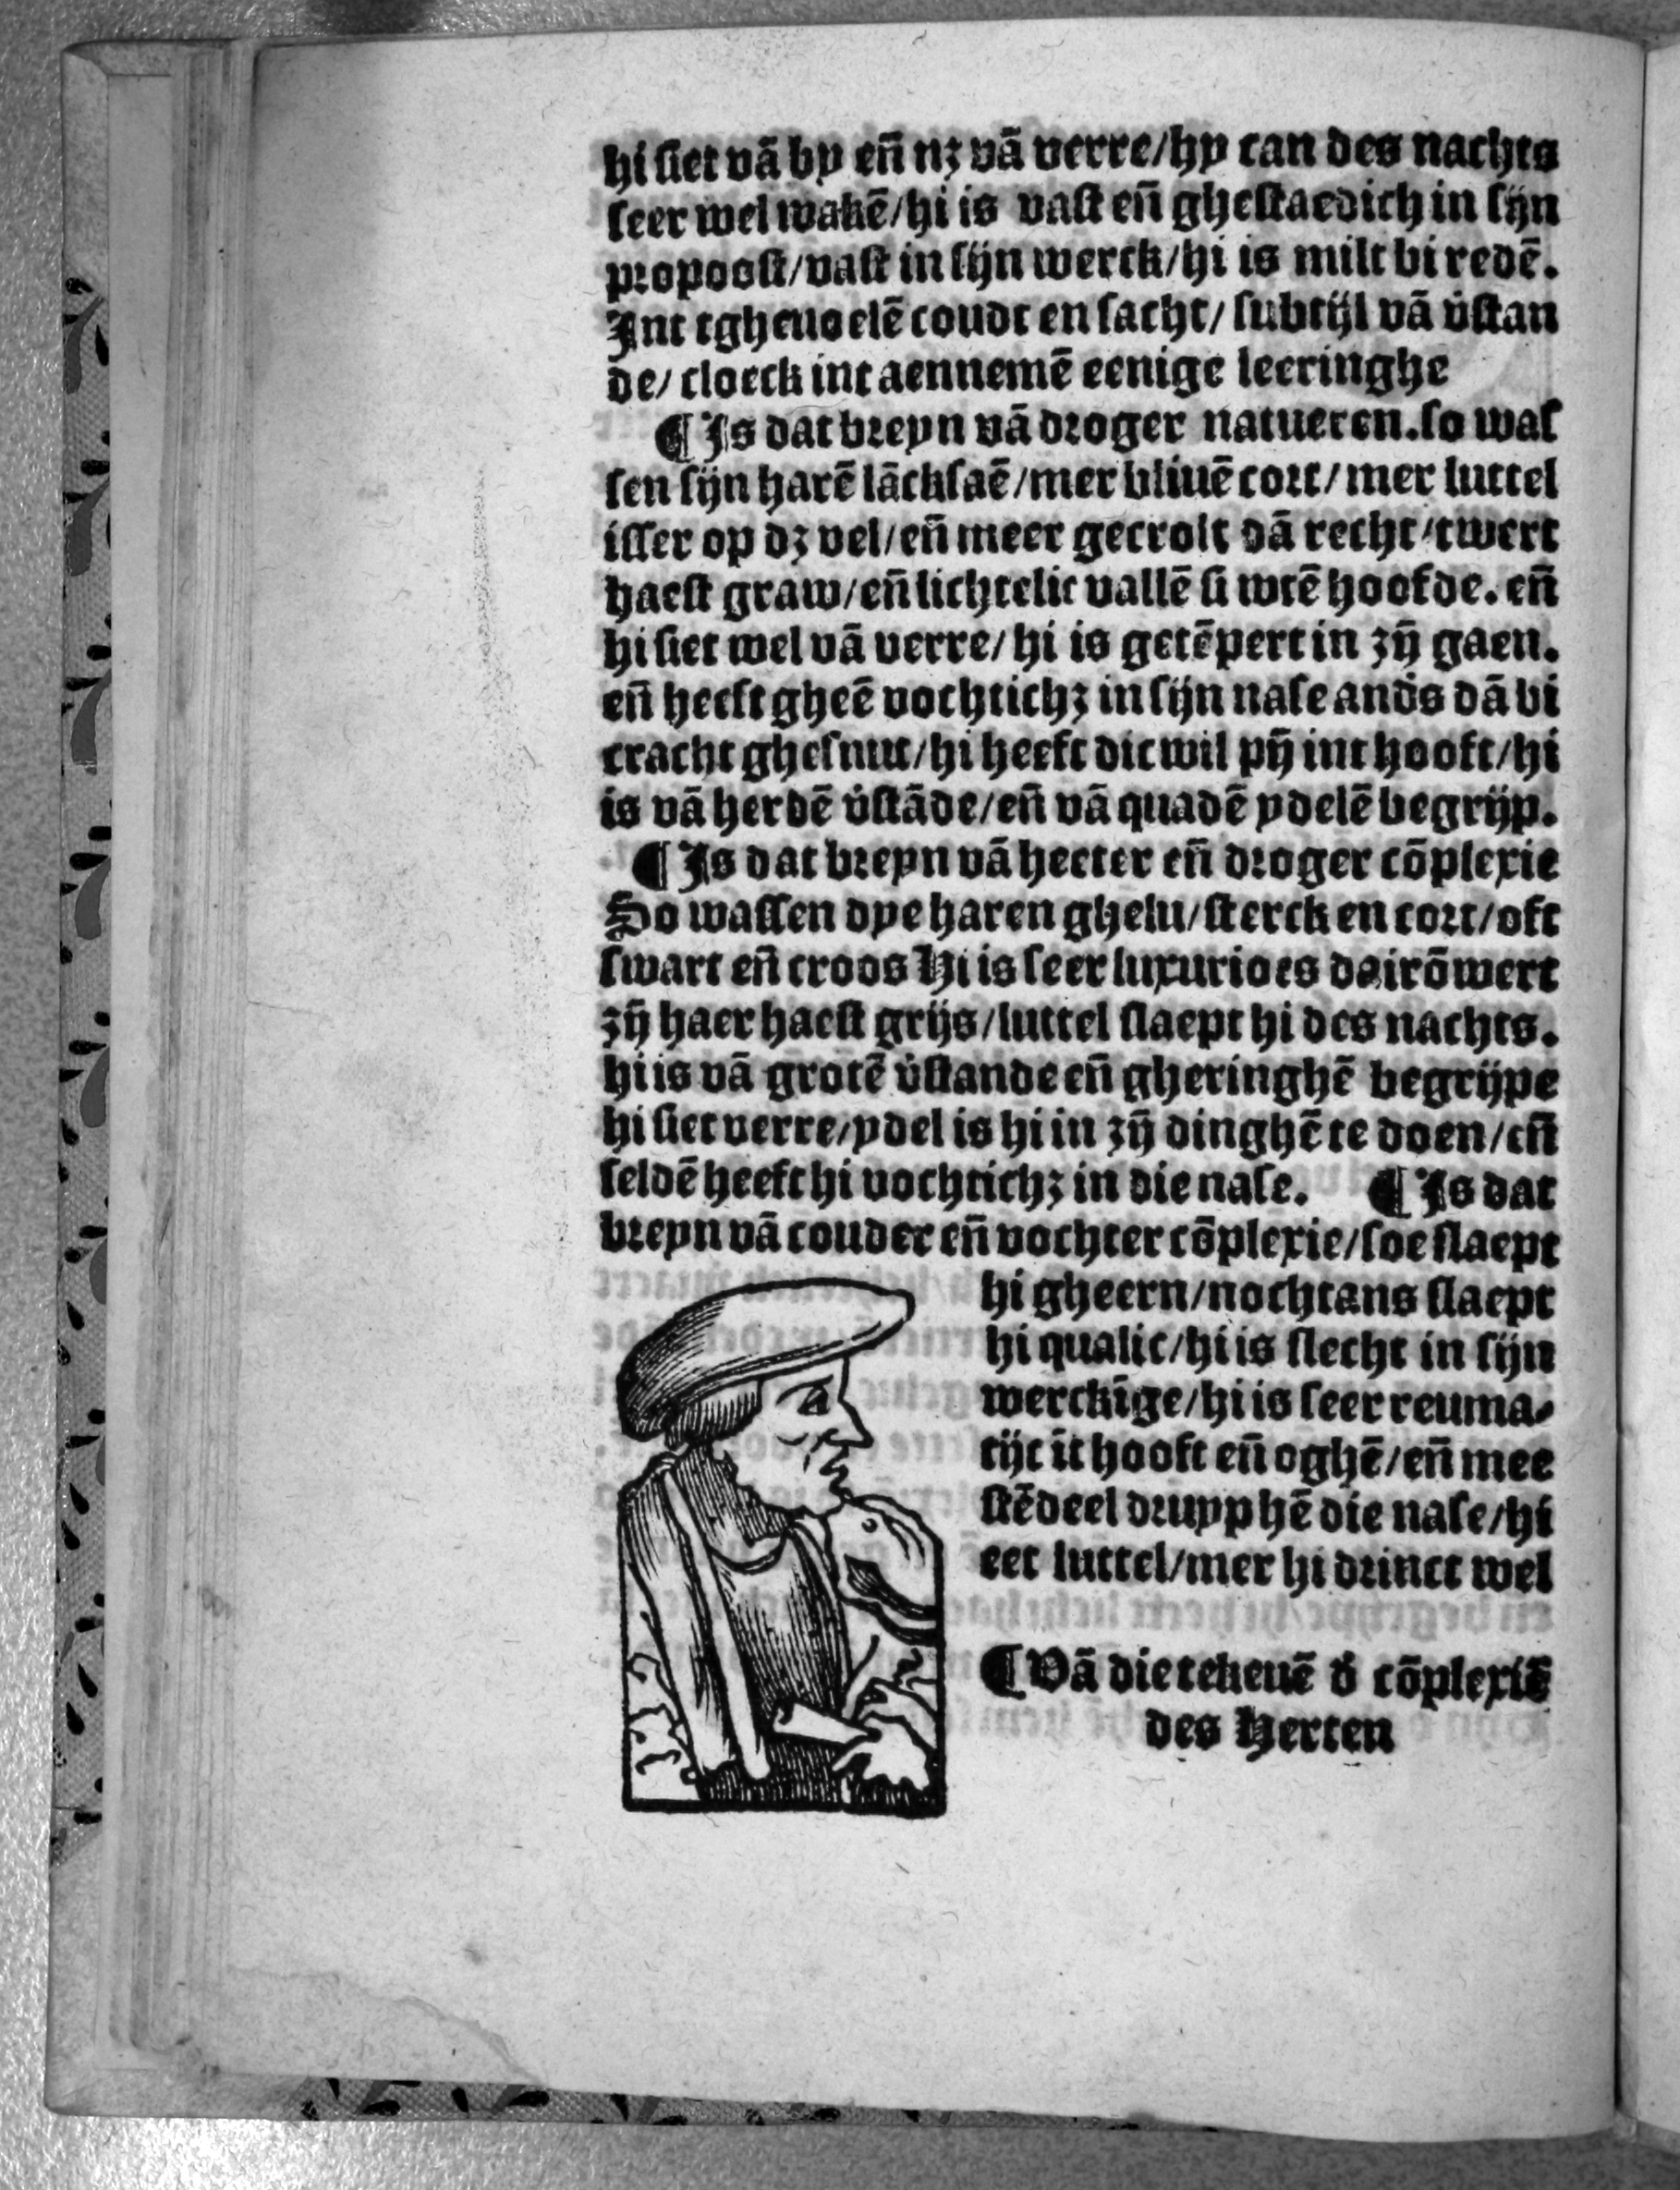 hi siet vā by en̄ nꝫ vā verre/hy can des nachts
seer wel wakē/hi is vast en̄ ghestaedich in sijn
propoost/vast in sijn werck/hi is milt bi redē.
Int tgheuoelē coudt en sacht/ subtijl vā v̄stan
de/ cloeck int aennemē eenige leeringhe
¶ Is dat breyn vā droger natueren.so was
sen sijn harē lācksaē/mer bliuē cort/mer luttel
isser op dꝫ vel/en̄ meer gecrolt dā recht/twert
haest graw/en̄ lichtelic vallē si wtē hoofde. en̄
hi siet wel vā verre/ hi is getēpert in zij̄ gaen.
en̄ heeft gheē vochtichꝫ in sijn nase and̄s dā bi
cracht ghesnut/hi heeft dicwil pij̄ int hooft/hi
is vā herdē v̄stāde/en̄ vā quadē ydelē begrijp.
¶ Is dat breyn vā heeter en̄ droger cōplexie
So wassen dye haren ghelu/sterck en cort/oft
swart en̄ croos Hi is seer luxurioes dairō wert
zij̄ haer haest grijs/luttel slaept hi des nachts.
hi is vā grotē v̄stande en̄ gheringhē begrijpe
hi siet verre/ydel is hi in zij̄ dinghē te doen/en̄
seldē heeft hi vochtichꝫ in die nase. ¶ Is dat
breyn vā couder en̄ vochter cōplexie/soe slaept
hi gheern/nochtans slaept
hi qualic/hi is slecht in sijn
werckīge/hi is seer reuma/
tijc īt hooft en̄ oghē/en̄ mee
stēdeel drupp hē die nase/hi
eet luttel/mer hi drinct wel
¶ Vā die tekenē d̄ cōplexiē
des Herten